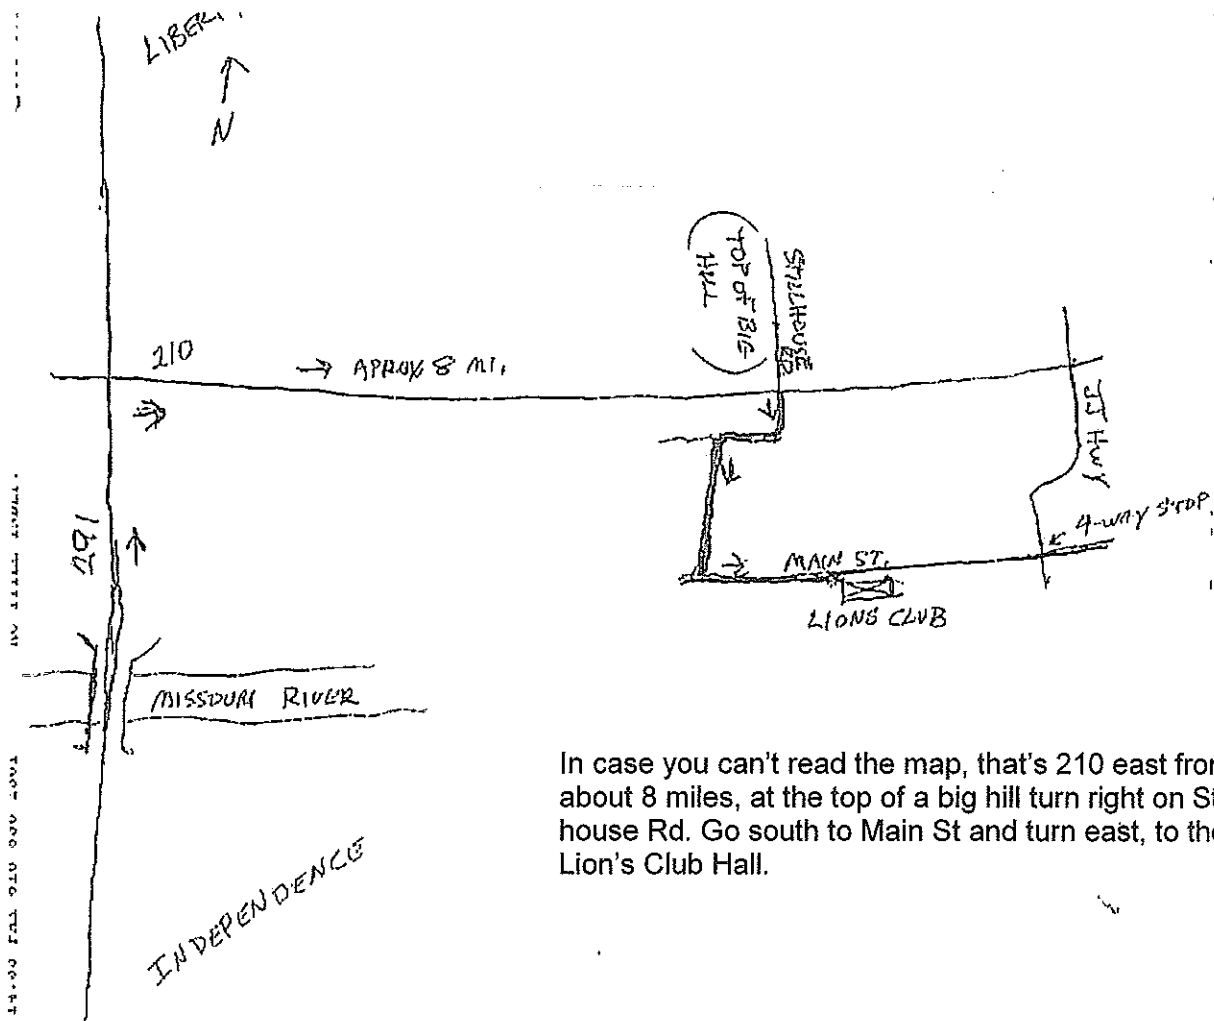 LIBERT
N
TOP OF BIG
HILL
STILLHOUSE
RD
210
→ APPROX 8 MI.
JJ HWY
4-WAY STOP
291
MAIN ST.
LIONS CLUB
MISSOURI RIVER
INDEPENDENCE
In case you can't read the map, that's 210 east from
about 8 miles, at the top of a big hill turn right on St
house Rd. Go south to Main St and turn east, to the
Lion's Club Hall.